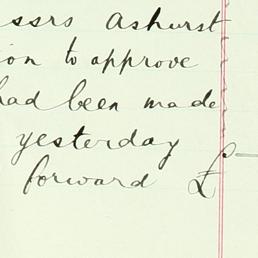 ssrs Ashurst
ion to approve
had been made
yesterday
forward £